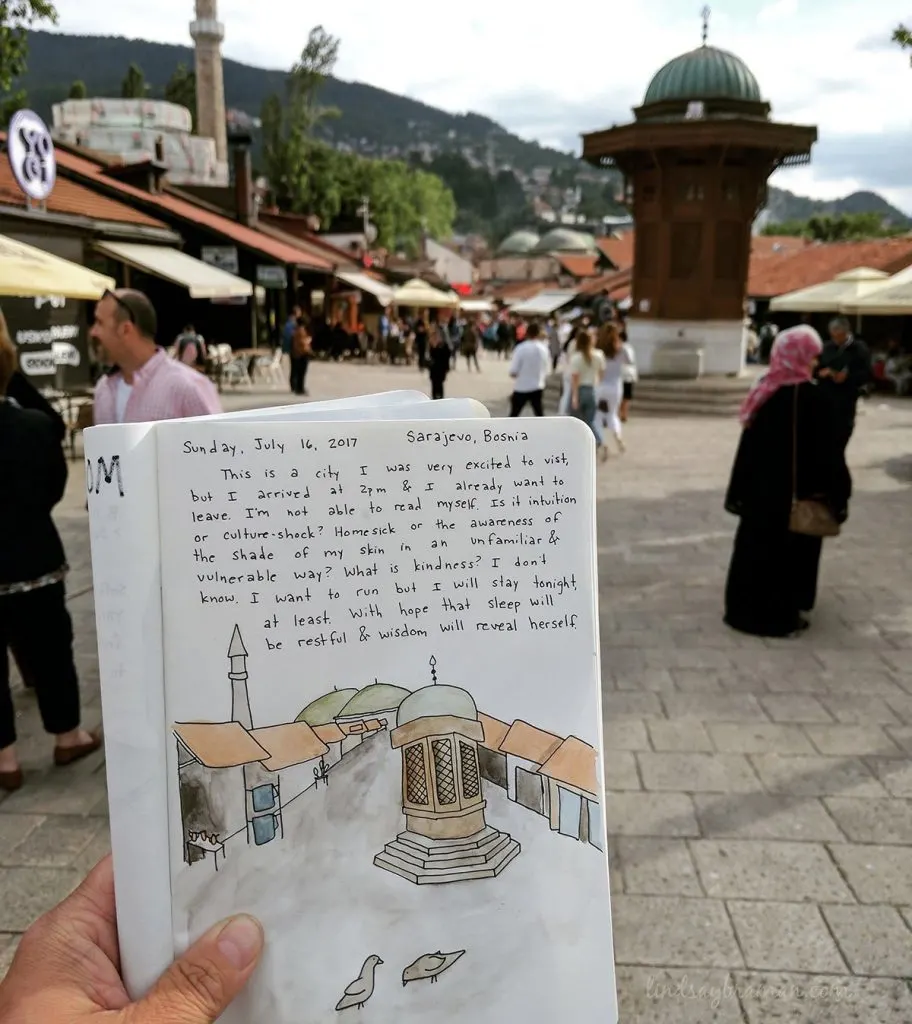 YOGI
OM
Sunday, July 16, 2017 Sarajevo, Bosnia
This is a city I was very excited to vist,
but I arrived at 2pm & I already want to
leave. I'm not able to read myself. Is it intuition
or culture-shock? Homesick or the awareness of
the shade of my skin in an unfamiliar &
vulnerable way? What is kindness? I don't
know. I want to run but I will stay tonight,
at least. With hope that sleep will
be restful & wisdom will reveal herself.
lindsaybraman.com